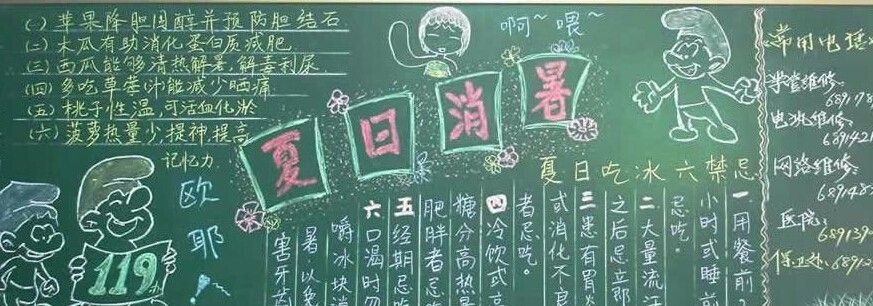 (一) 苹果降胆固醇并预防胆结石
(二) 木瓜有助消化蛋白质减肥
(三) 西瓜能够清热解暑,解毒利尿
(四) 多吃草莓汁能减少晒痛
(五) 桃子性温,可活血化淤
(六) 菠萝热量少,提神提高
记忆力
欧
耶
119
啊~喂~
夏日消暑
夏日吃冰六禁忌
一用餐前
小时或睡前
忌吃。
二大量流汗
之后忌立即
三患有胃
或消化不良
者忌吃。
四冷饮或
糖分高热
肥胖者忌
五经期忌
六口渴时勿
嚼冰块消
暑,以免
害牙齿
常用电话
学管维修:
电池维修:
689142
网络维修:
医院:
689139
保卫处: